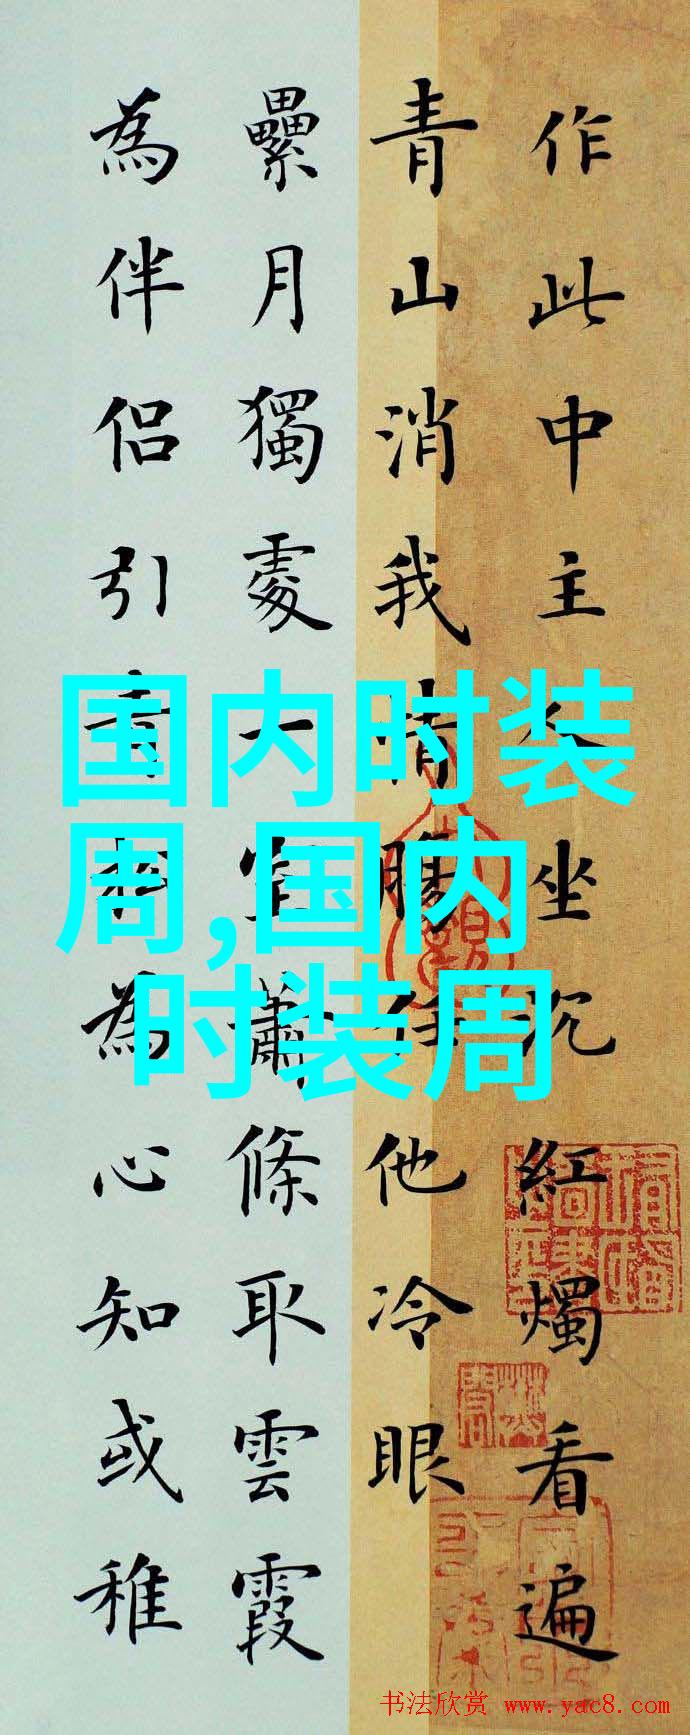 作此中主人坐沉紅燭看遍
青山消我情腸任他冷眼
纍月獨處一室蕭條取雲霞
為伴侶引青松為心知或稚
国内时装
周,国内
时装周
书法欣赏 www.yac8.com